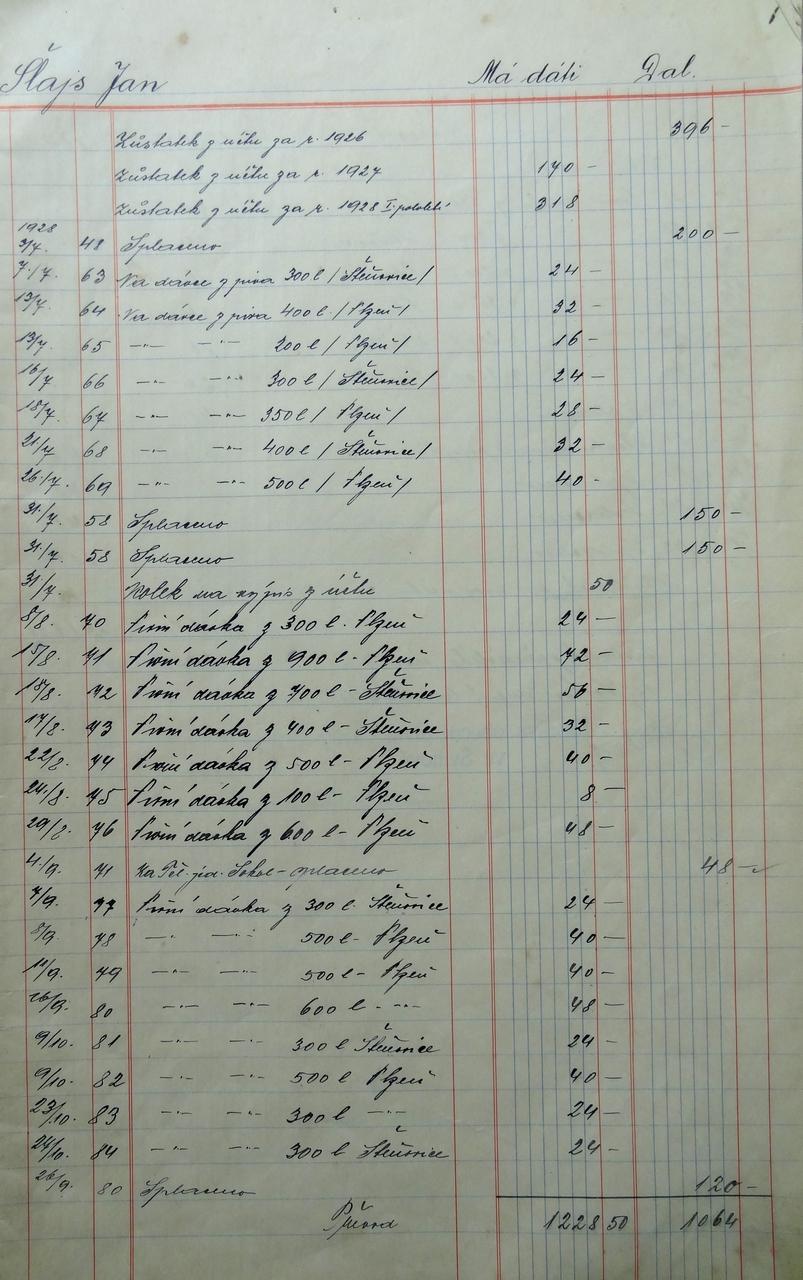 Šlajs Jan Má dáti Dal.
Zůstatek z účtu za r. 1926 396 —
Zůstatek z účtu za r. 1927 170 —
Zůstatek z účtu za r. 1928 I. pololetí 318
1928
3/7. 48 Splaceno 200 —
7./7. 63 Na dávce z piva 300 l / Štěnovice / 24 —
13/7. 64 Na dávce z piva 400 l / Plzeň / 32 —
13/7. 65 —"— —"— 200 l / Plzeň / 16 —
16/7 66 —"— —"— 300 l / Štěnovice / 24 —
18/7. 67 —"— —"— 350 l / Plzeň / 28 —
21/7 68 —"— —"— 400 l / Štěnovice / 32 —
26./7. 69 —"— —"— 500 l / Plzeň / 40 —
31./7. 58 Splaceno 150 —
31./7. 58 Splaceno 150 —
31/7. Kolek na výpis z účtu 50
8/8. 70 Pivní dávka z 300 l. Plzeň 24 —
15/8. 71 Pivní dávka z 900 l - Plzeň 72 —
18/8. 72 Pivní dávka z 700 l - Štěnovice 56 —
17/8. 73 Pivní dávka z 400 l - Štěnovice 32 —
22/8. 74 Pivní dávka z 500 l - Plzeň 40 —
24./8. 75 Pivní dávka z 100 l - Plzeň 8 —
29/8. 76 Pivní dávka z 600 l - Plzeň 48 —
4./9. 71 Za Těl. jed. Sokol - splaceno 48 —
7/9. 77 Pivní dávka z 300 l. Štěnovice 24 —
8/9. 78 —"— —"— 500 l - Plzeň 40 —
11/9. 79 —"— —"— 500 l - Plzeň 40 —
26/9. 80 —"— —"— 600 l - —"— 48 —
9/10. 81 —"— —"— 300 l Štěnovice 24 —
9/10. 82 —"— —"— 500 l Plzeň 40 —
23/10. 83 —"— —"— 300 l —"— 24 —
24/10. 84 —"— —"— 300 l Štěnovice 24 —
26/9. 80 Splaceno 120 —
Převod 1228 50 1064